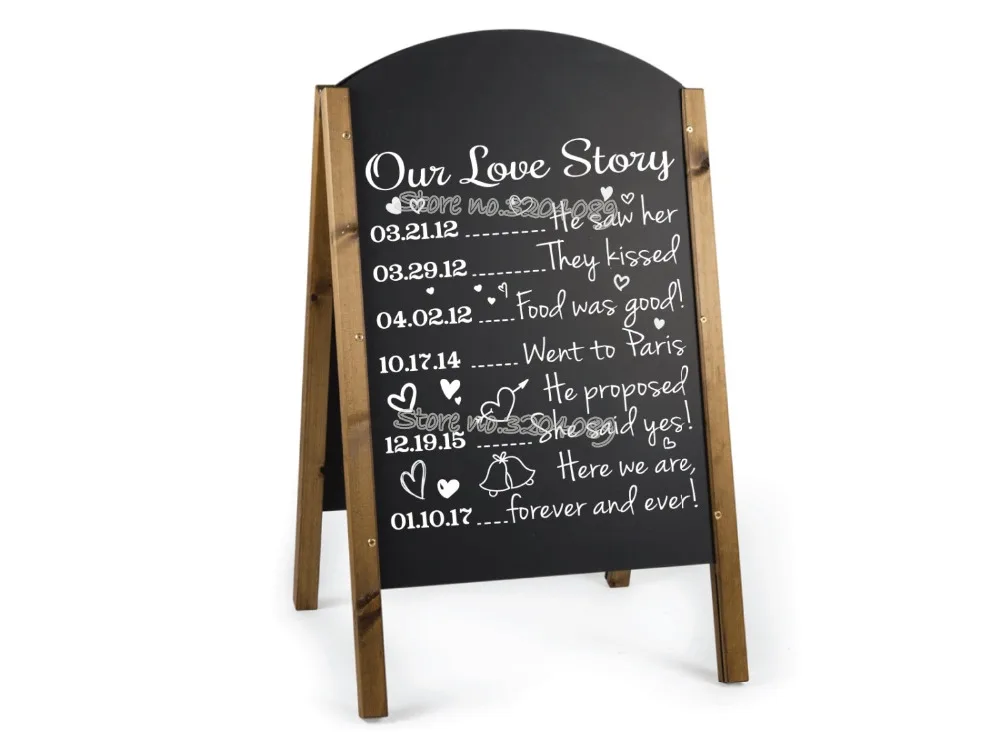 Our Love Story
Store no.3204089
03.21.12 _________ He saw her
03.29.12 ________ They kissed
04.02.12 _____ Food was good!
10.17.14 ______ Went to Paris
He proposed
Store no.3204089
12.19.15 _______ She said yes!
Here we are,
01.10.17 ____ forever and ever!